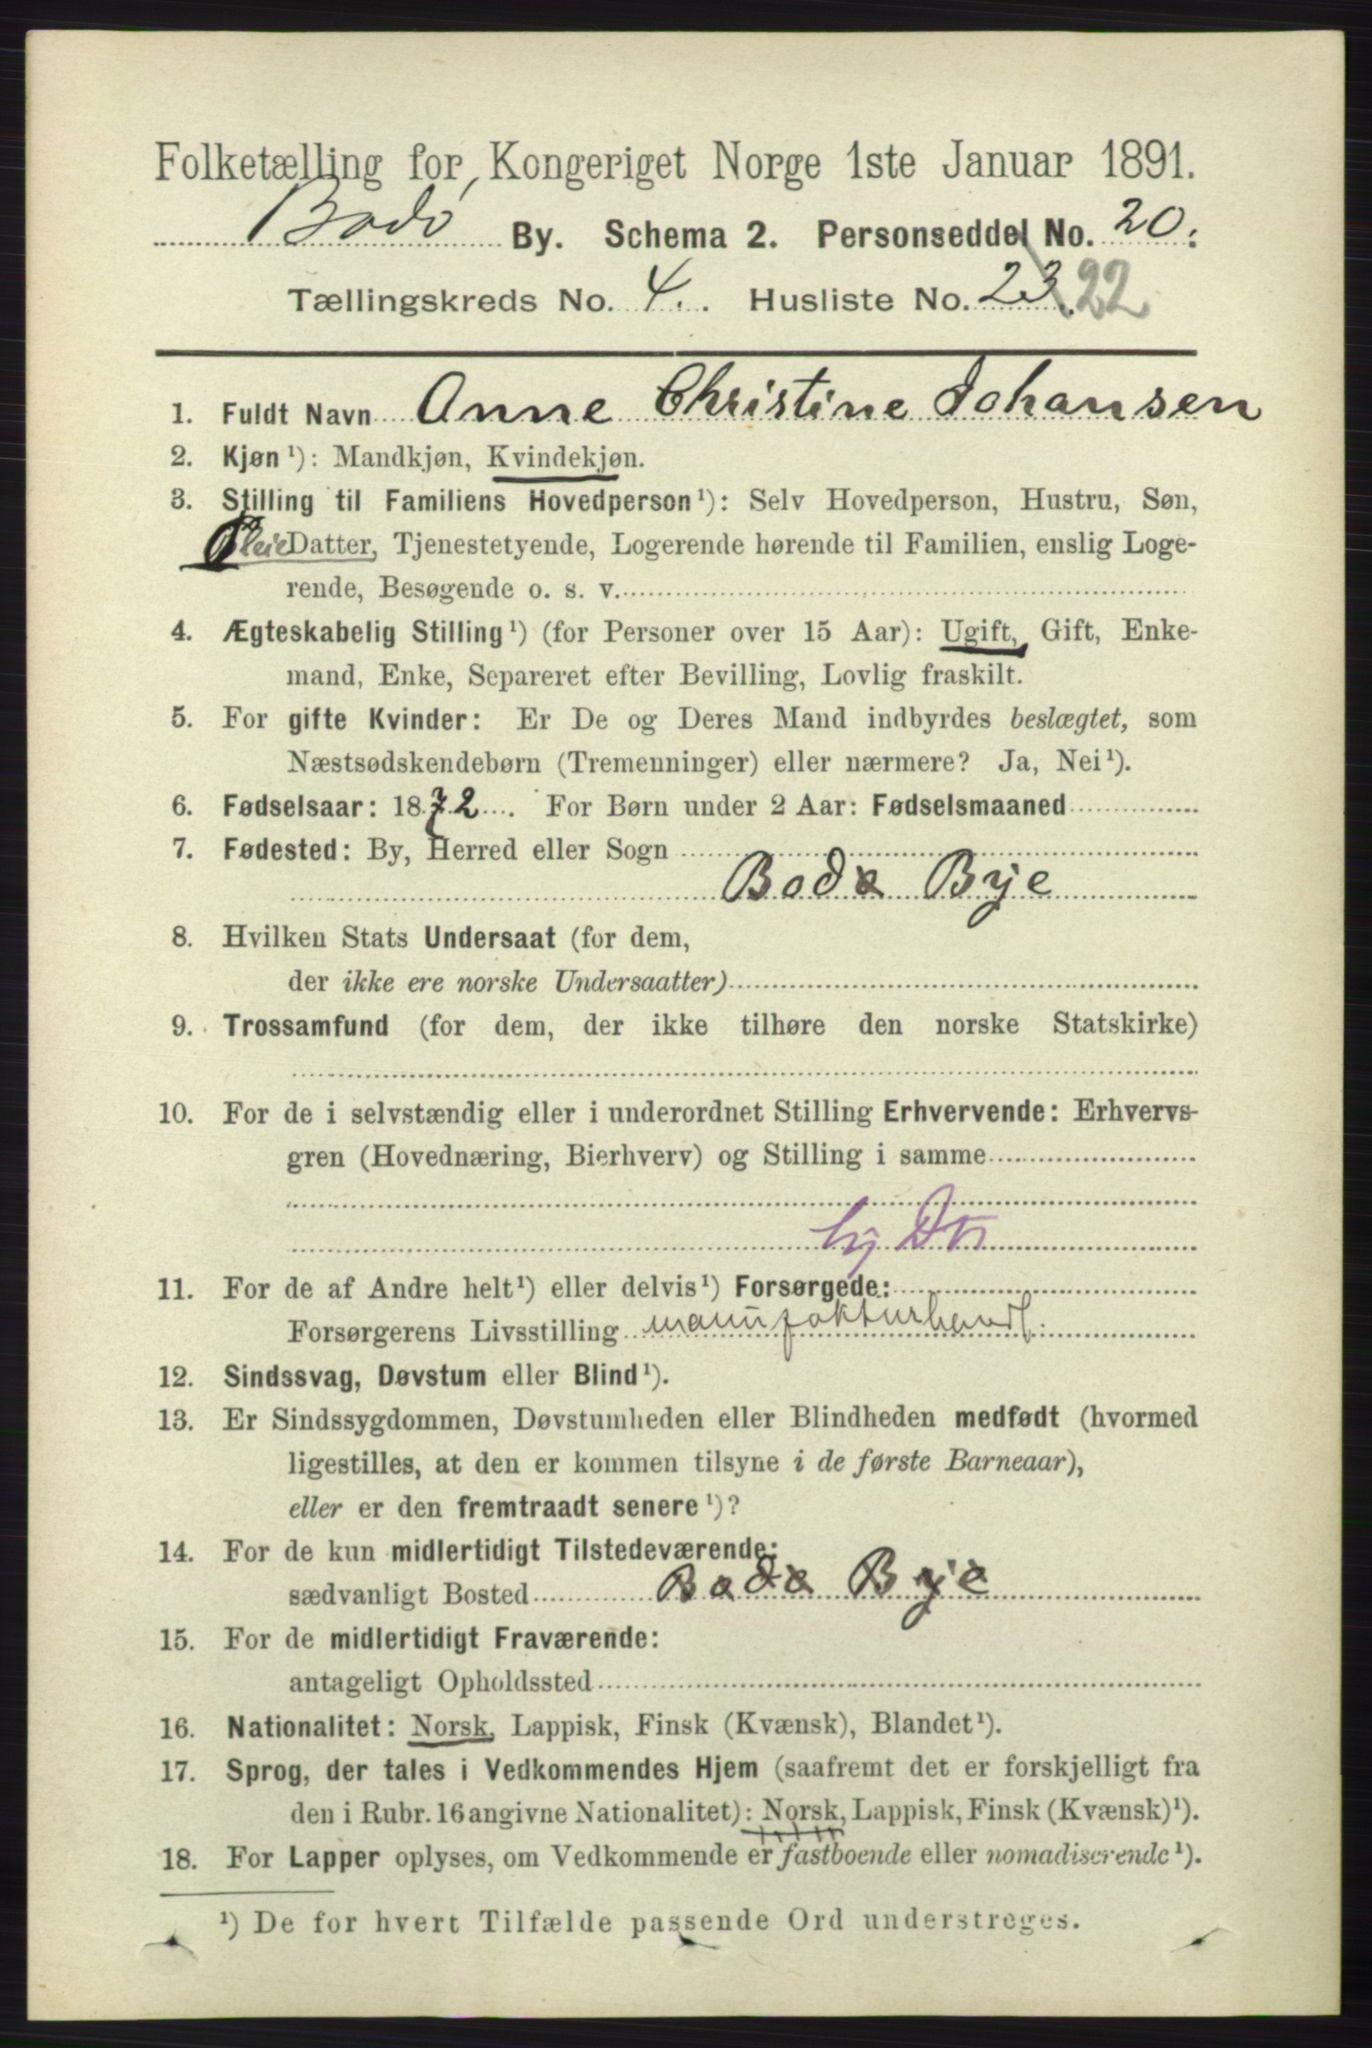 Folketælling for Kongeriget Norge 1ste Januar 1891.
Bodø By. Schema 2. Personseddel No. 20.
Tællingskreds No. 4. Husliste No. 23. 22
1. Fuldt Navn Anne Christine Johansen
2. Kjøn ¹): Mandkjøn, Kvindekjøn.
3. Stilling til Familiens Hovedperson ¹): Selv Hovedperson, Hustru, Søn,
Pleie Datter, Tjenestetyende, Logerende hørende til Familien, enslig Loge-
rende, Besøgende o. s. v.
4. Ægteskabelig Stilling ¹) (for Personer over 15 Aar): Ugift, Gift, Enke-
mand, Enke, Separeret efter Bevilling, Lovlig fraskilt.
5. For gifte Kvinder: Er De og Deres Mand indbyrdes beslægtet, som
Næstsødskendebørn (Tremenninger) eller nærmere? Ja, Nei ¹).
6. Fødselsaar: 1872. For Børn under 2 Aar: Fødselsmaaned
7. Fødested: By, Herred eller Sogn
Bodø Bye
8. Hvilken Stats Undersaat (for dem,
der ikke ere norske Undersaatter)
9. Trossamfund (for dem, der ikke tilhøre den norske Statskirke)
10. For de i selvstændig eller i underordnet Stilling Erhvervende: Erhvervs-
gren (Hovednæring, Bierhverv) og Stilling i samme
hj Dtr
11. For de af Andre helt ¹) eller delvis ¹) Forsørgede:
Forsørgerens Livsstilling manufakturhandl.
12. Sindssvag, Døvstum eller Blind ¹).
13. Er Sindssygdommen, Døvstumheden eller Blindheden medfødt (hvormed
ligestilles, at den er kommen tilsyne i de første Barneaar),
eller er den fremtraadt senere ¹)?
14. For de kun midlertidigt Tilstedeværende:
sædvanligt Bosted Bodø Bye
15. For de midlertidigt Fraværende:
antageligt Opholdssted
16. Nationalitet: Norsk, Lappisk, Finsk (Kvænsk), Blandet ¹).
17. Sprog, der tales i Vedkommendes Hjem (saafremt det er forskjelligt fra
den i Rubr. 16 angivne Nationalitet): Norsk, Lappisk, Finsk (Kvænsk) ¹).
18. For Lapper oplyses, om Vedkommende er fastboende eller nomadiserende ¹).
¹) De for hvert Tilfælde passende Ord understreges.